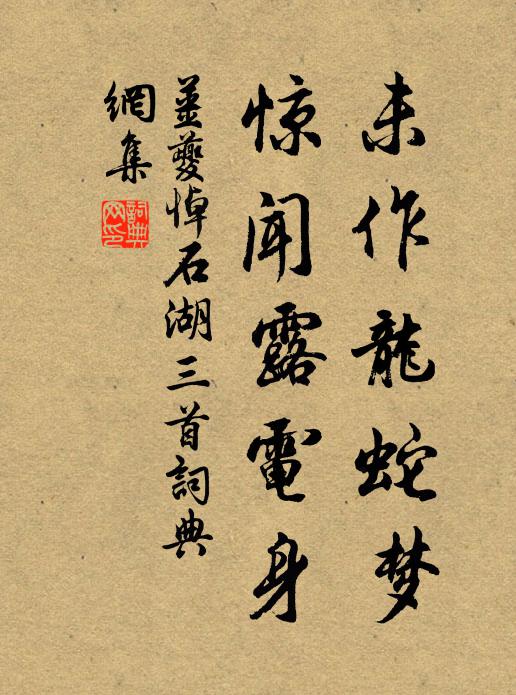 未作龍蛇梦
惊闻露電身
姜夔悼石湖三首詞典
網集
詞典网印